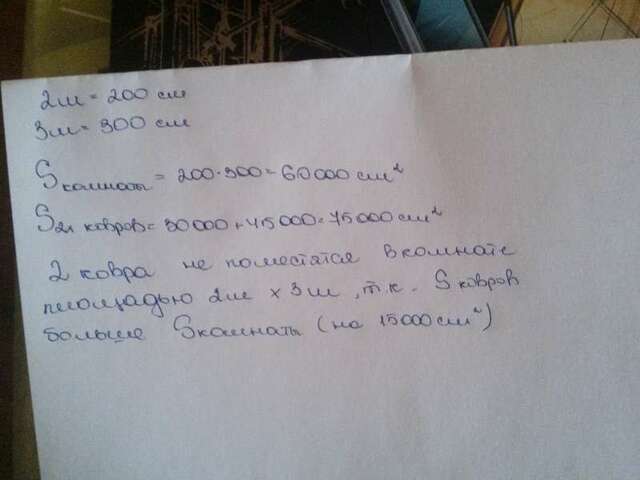 2м = 200 см
3м = 300 см
Sкомнаты = 200·300 = 60000 см²
S2х ковров = 30000 + 45000 = 75000 см²
2 ковра не поместятся в комнате
площадью 2м х 3м, т.к. Sковров
больше Sкомнаты (на 15000 см²)